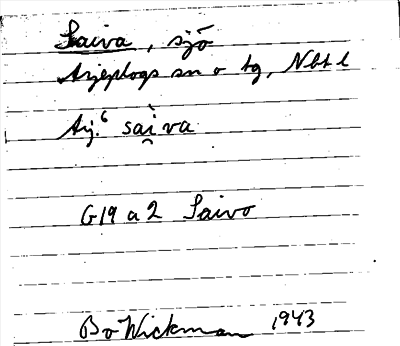 Saiva, sjö
Arjeplogs sn o tg, Nbt l
Arj.⁶ saì̯va
G19 a 2 Saivo
Bo Wickman 1943